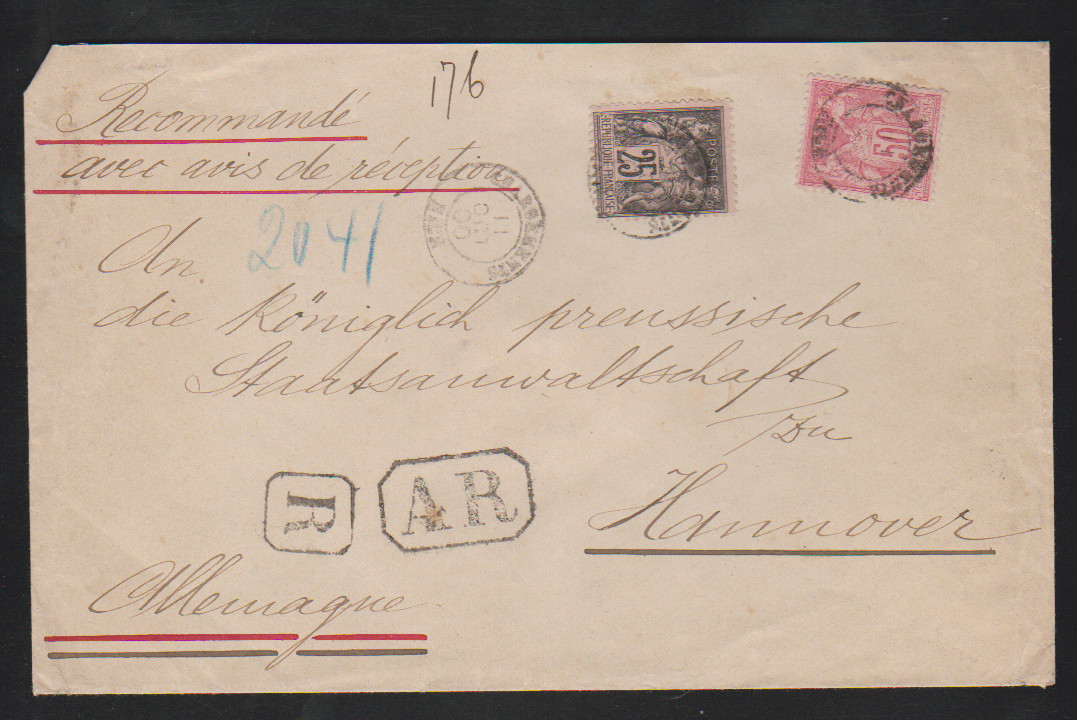 176
Recommandé
avec avis de réception
2041
An
die Königlich preussische
Staatsanwaltschaft
zu
Hannover
R
AR
Allemagne
25
POSTE
REPUBLIQUE FRANÇAISE
50
11
00